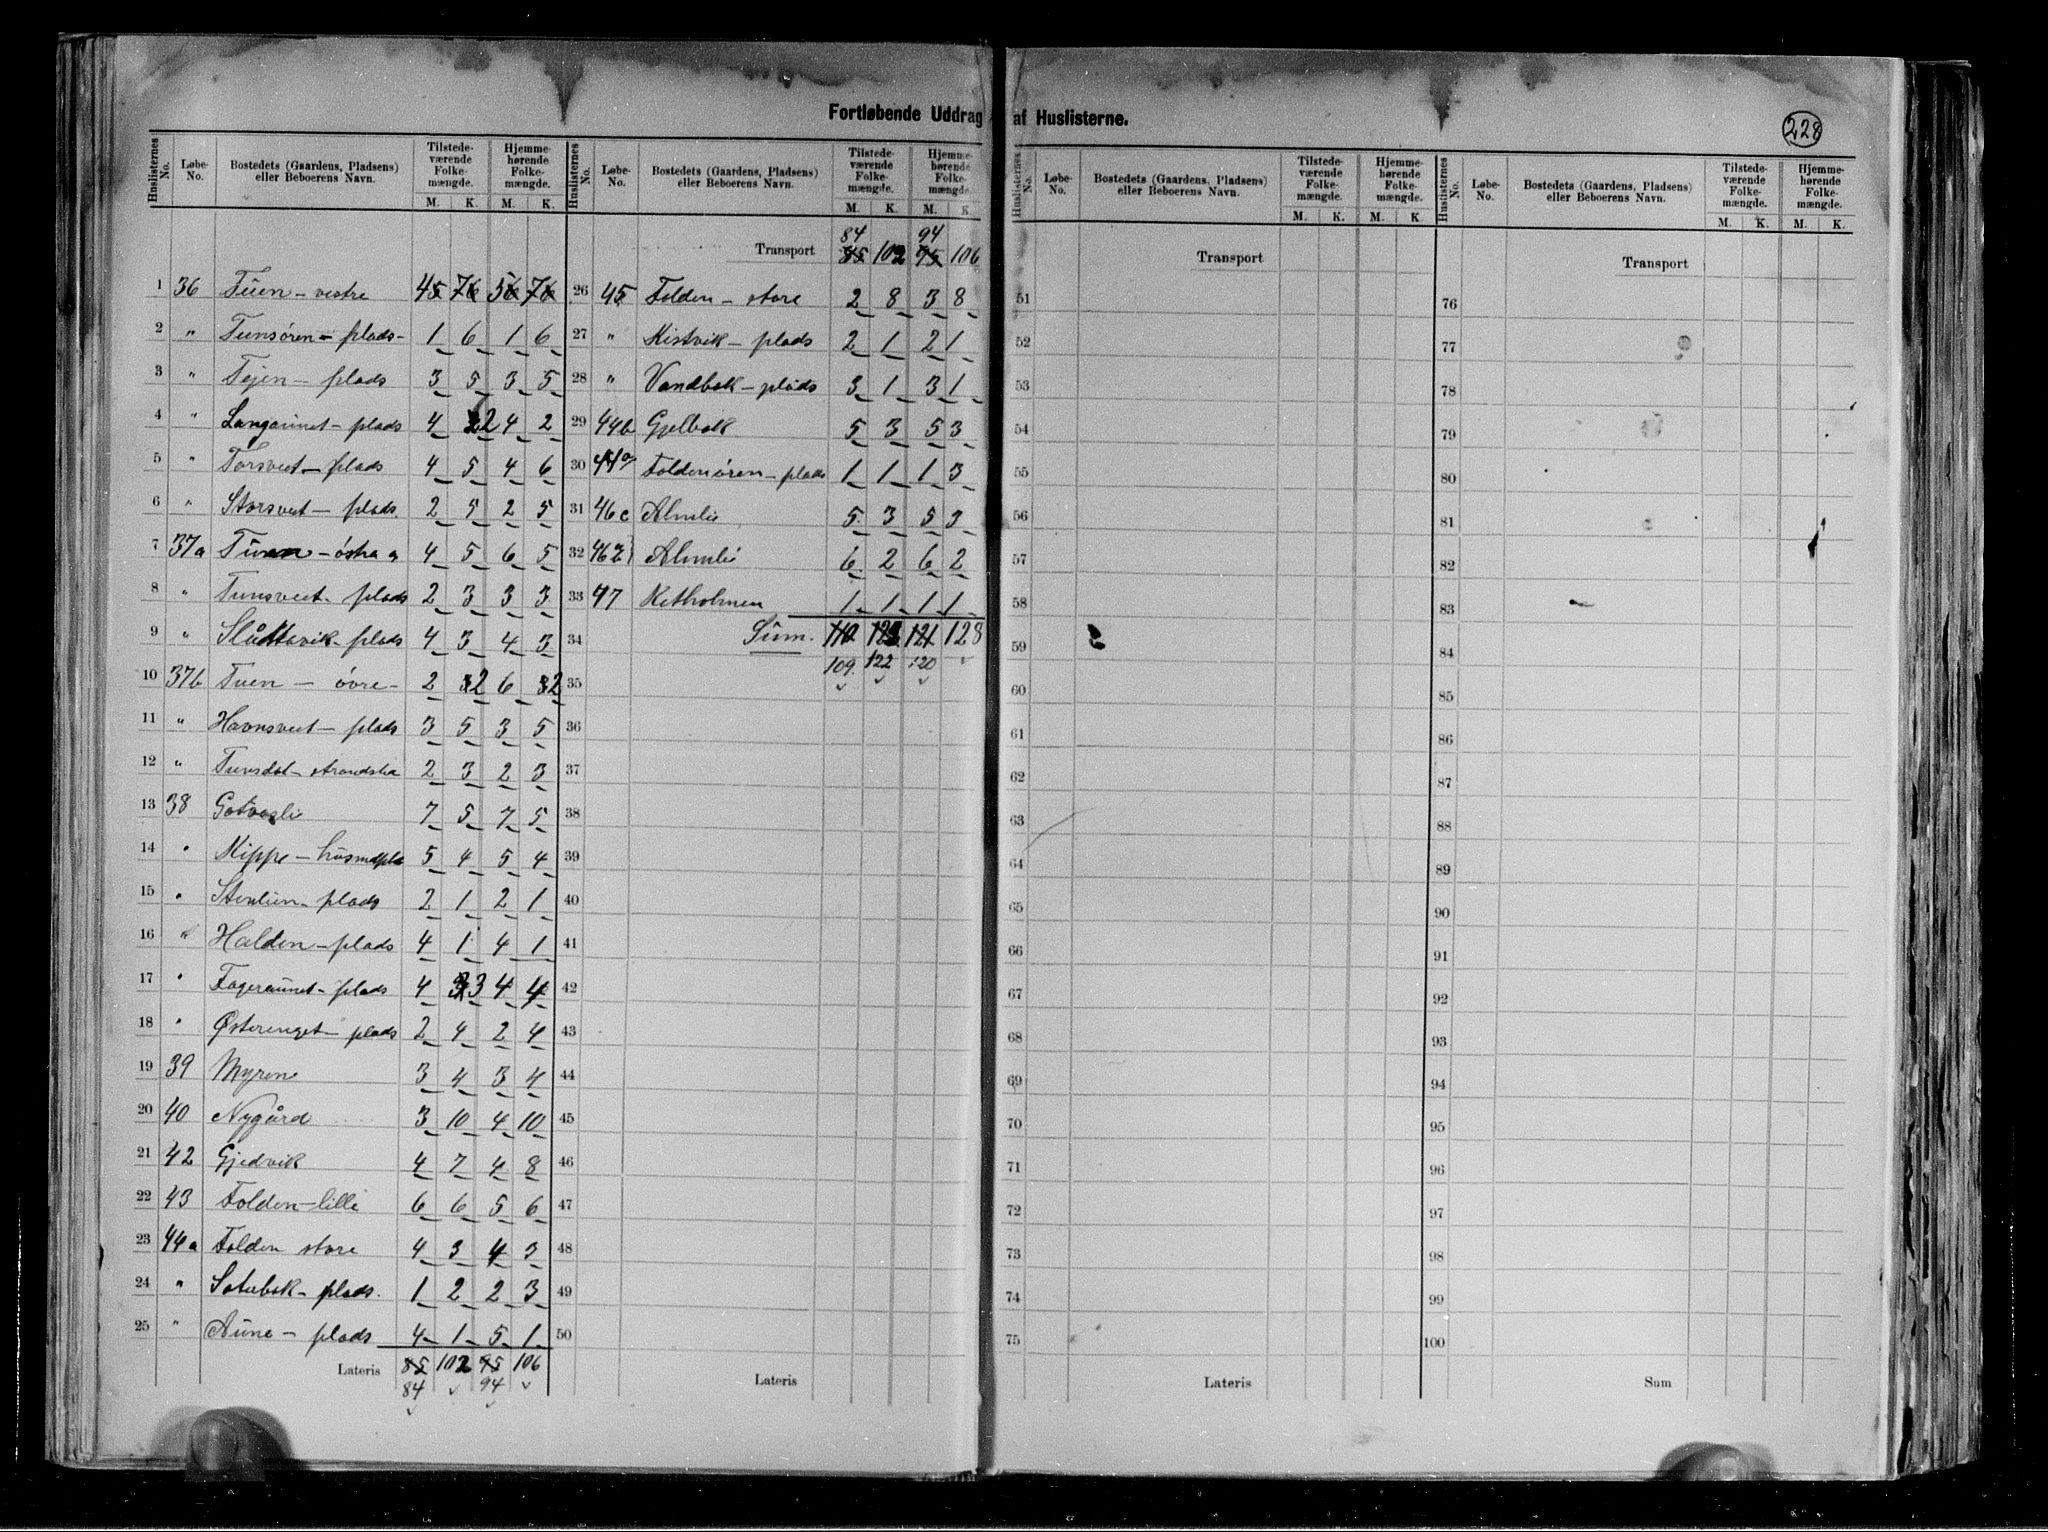 Fortløbende Uddrag af Huslisterne.
228
Huslisternes No. Løbe-No. Bostedets (Gaardens, Pladsens) eller Beboerens Navn. Tilstedeværende Folkemængde. M. K. Hjemmehørende Folkemængde. M. K.
1 36 Tuen - vestre
2 " Tunsøren - plads 1 6 1 6
3 " Tejen - plads 3 5 3 5
4 " Langaunet - plads 4 2 4 2
5 " Torsveet - plads 4 5 4 6
6 " Storsveet - plads. 2 5 2 5
7 37a Tuen - østra a 4 5 6 5
8 " Tunsveet - plads 2 3 3 3
9 " Slåttavik - plads 4 3 4 3
10 37b Tuen - øvre - 2 2 6 2
11 " Havnsveet - plads 3 5 3 5
12 " Tunsdal - 2 3 2 3
13 38 Gotvasli 7 5 7 5
14 " Kippe - husmdpla 5 4 5 4
15 " Stenlien - plads 2 1 2 1
16 " Halden - plads 4 1 4 1
17 " Fageraunet - plads 4 3 4 4
18 " Østerenget - plads 2 4 2 4
19 39 Myren 3 4 3 4
20 40 Nygård 3 10 4 10
21 42 Gjedvik 4 7 4 8
22 43 Folden - lille 6 6 5 6
23 44a Folden store 4 3 4 3
24 " Saterbak - plads. 1 2 2 3
25 " Aune - plads 4 1 5 1
Lateris 85 102 95 106
84 94
Huslisternes No. Løbe-No. Bostedets (Gaardens, Pladsens) eller Beboerens Navn. Tilstedeværende Folkemængde. M. K. Hjemmehørende Folkemængde. M. K.
84 94
Transport 85 102 95 106
26 45 Folden - store 2 8 3 8
27 " Kistvik - plads 2 1 2 1
28 " Vandbak - plads 3 1 3 1
29 44b Gjelbak 5 3 5 3
30 44a Foldenøren - plads 1 1 1 3
31 46c Almlie 5 3 5 3
32 46 Almlie 6 2 6 2
33 47 Ketholmen 1 1 1 1
34 Sum. 110 123 121 128
109. 122 120
35
36
37
38
39
40
41
42
43
44
45
46
47
48
49
50
Lateris
Huslisternes No. Løbe-No. Bostedets (Gaardens, Pladsens) eller Beboerens Navn. Tilstedeværende Folkemængde. M. K. Hjemmehørende Folkemængde. M. K.
Transport
51
52
53
54
55
56
57
58
59
60
61
62
63
64
65
66
67
68
69
70
71
72
73
74
75
Lateris
Huslisternes No. Løbe-No. Bostedets (Gaardens, Pladsens) eller Beboerens Navn. Tilstedeværende Folkemængde. M. K. Hjemmehørende Folkemængde. M. K.
Transport
76
77
78
79
80
81
82
83
84
85
86
87
88
89
90
91
92
93
94
95
96
97
98
99
100
Sum